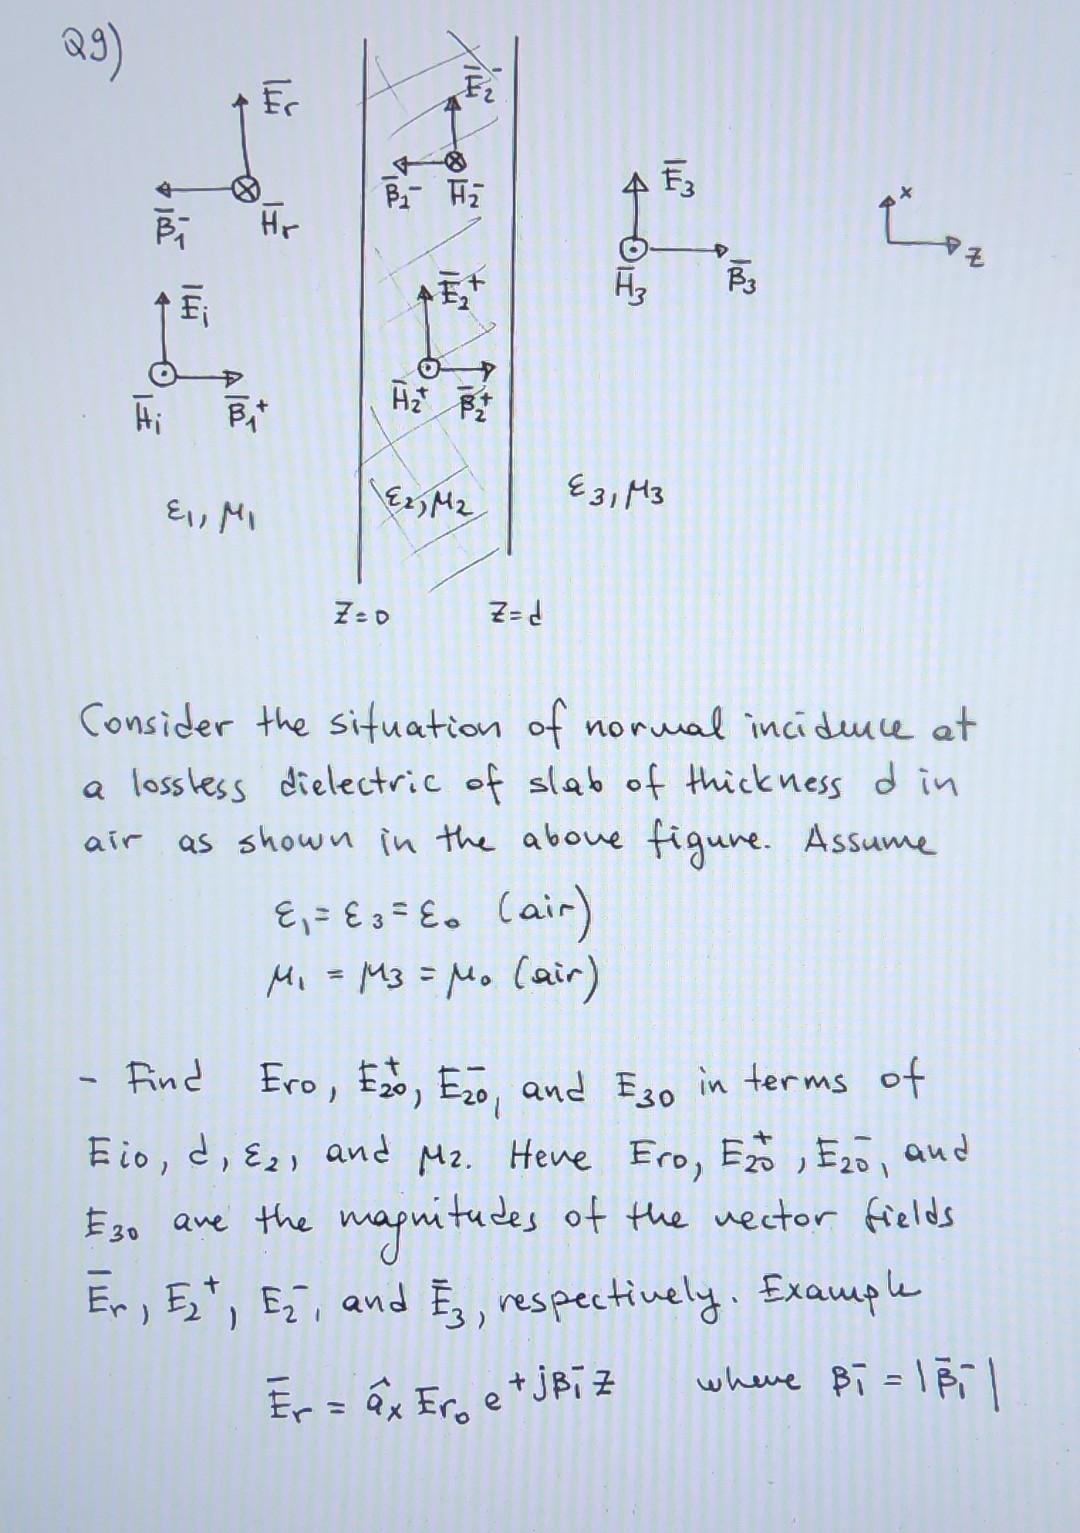 Q9)
Ēr
Ē2⁻
β̄1⁻ H̄r
β̄2⁻ H̄2⁻
Ē3
H̄3 β̄3
x
z
Ēi
Ē2⁺
H̄i β̄1⁺
H̄2⁺ β̄2⁺
ε1, μ1
ε2, μ2
ε3, μ3
z=0 z=d
Consider the situation of normal incidence at
a lossless dielectric of slab of thickness d in
air as shown in the above figure. Assume
ε1 = ε3 = ε0 (air)
μ1 = μ3 = μ0 (air)
- Find Er0, E20⁺, E20⁻, and E30 in terms of
Ei0, d, ε2, and μ2. Here Er0, E20⁺, E20⁻, and
E30 are the magnitudes of the vector fields
Ēr, E2⁺, E2⁻, and Ē3, respectively. Example
Ēr = âx Er0 e^+jβ1⁻z where β1⁻ = |β̄1⁻|